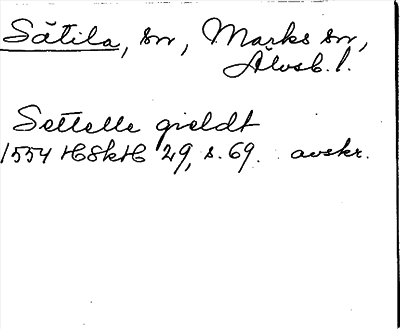 Sätila, sn, Marks sn,
Älvsb. l.
Settelle gieldt
1554 HSkH 29, s. 69. avskr.